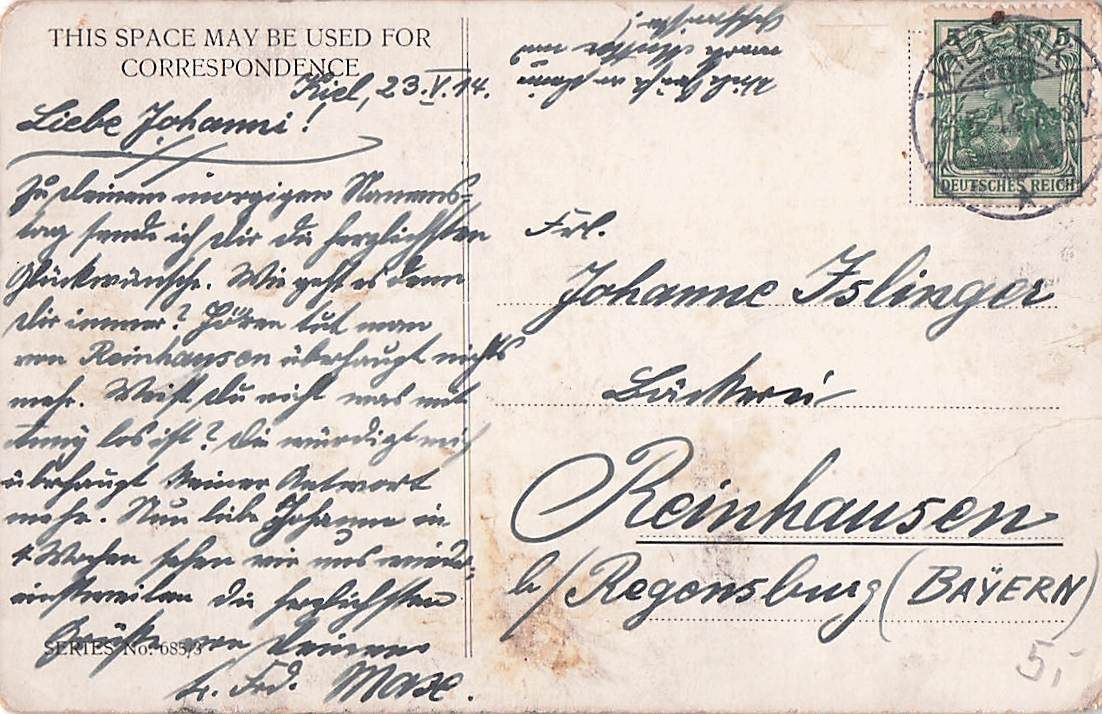 THIS SPACE MAY BE USED FOR
CORRESPONDENCE
Kiel, 23.V.14.
Liebe Johanni!
Zu Deinem morgigen Namens-
tag sende ich Dir die herzlichsten
Glückwünsche. Wie geht es denn
Dir immer? Hören tut man
von Reinhausen überhaupt nichts
mehr. Weißt Du nicht was mit
Anny los ist? Die würdigt mich
überhaupt keiner Antwort
mehr. Nun liebe Johanna in
4 Wochen sehen wir uns wieder,
einstweilen die herzlichsten
Grüße von Deinem
tr. Frd. Max.
SERIES No. 685/3
5 5
DEUTSCHES REICH
KIEL
Frl.
Johanne Islinger
Bäckerei
Reinhausen
b/Regensburg (BAYERN)
5,-